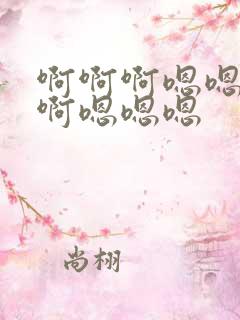 啊啊啊嗯嗯
啊嗯嗯嗯
尚栩